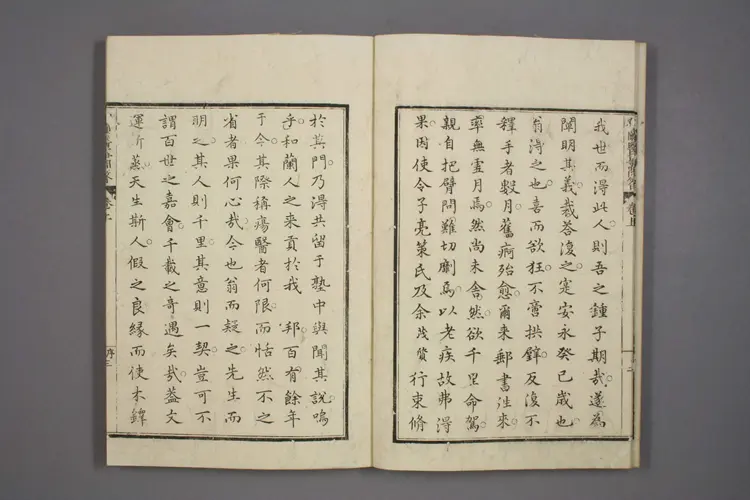 我世而得此人則吾之鍾子期哉遂為
闡明其義裁荅復之寔安永癸巳歲也
翁得之也喜而欲狂不啻拱璧反復不
釋手者數月舊痾殆愈爾來郵書往來
率無虛月焉然尚未舍然欲千里命駕
親自把臂問難切劘焉以老疾故弗得
果因使令子亮策氏及余茂質行束脩
於其門乃得共留于塾中與聞其說嗚
乎和蘭人之來貢於我 邦百有餘年
于今其際稱瘍醫者何限而恬然不之
省者果何心哉今也翁而疑之先生而
明之其人則千里其意則一契豈可不
謂百世之嘉會千載之奇遇矣哉蓋文
運所蒸天生斯人假之良緣而使木鐸